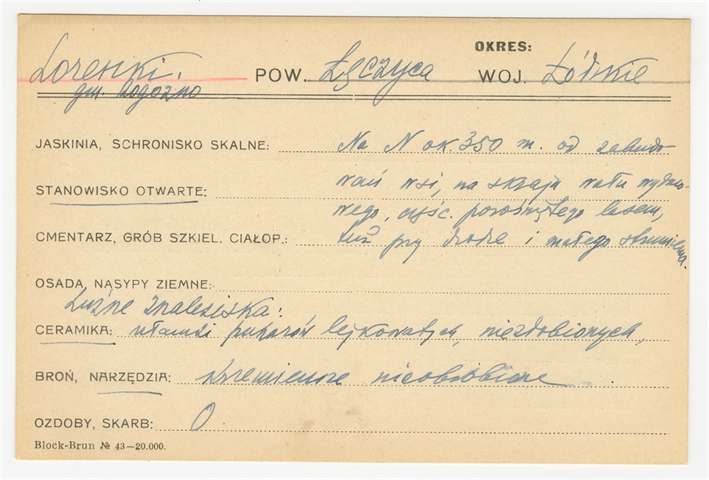 OKRES:
Lorenki. POW. Łęczyca WOJ. Łódzkie
gm. Rogoźno
JASKINIA, SCHRONISKO SKALNE: Na N ok. 350 m. od zabudo
STANOWISKO OTWARTE: wań wsi, na skraju wału wydmo-
wego, częśc. porośniętego lasem,
CMENTARZ, GRÓB SZKIEL. CIAŁOP.: tuż przy drodze i małego strumienia.
OSADA, NASYPY ZIEMNE:
Luźne znaleziska:
CERAMIKA: ułamki pucharów lejkowatych, niezdobionych,
BROŃ, NARZĘDZIA: krzemienne nieobrobione
OZDOBY, SKARB: O
Block-Brun № 43—20.000.